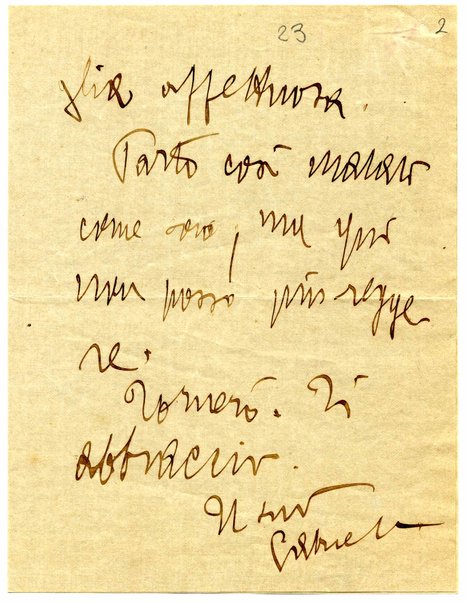 23 2
glia affettuosa.
Parto così malato
come sono, ma qui
non posso più regge
re.
Tornerò. Ti
abbraccio.
Il tuo
Gabriele